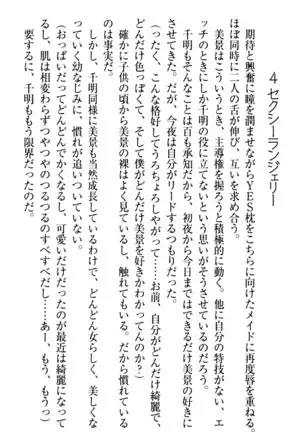 4 セクシーランジェリー
期待と興奮に瞳を潤ませながらYES枕をこちらに向けたメイドに再度唇を重ねる。
ほぼ同時に二人の舌が伸び、互いを求め合う。
美景はこういうとき、主導権を握ろうと積極的に動く。他に自分の特技がない、エ
ッチのときにしか千明の役に立てないという思いがそうさせているのだろう。
千明もそんなことは百も承知だから、初夜から今日まではできるだけ美景の好きに
させてきた。だが、今夜は自分がリードするつもりだった。
(ったく、こんな格好してうちょろしやがって……お前、自分がどんだけ綺麗で、
どんだけ色っぽくて、そして僕がどんだけ美景を好きかわかってんのか?)
確かに子供の頃から美景の裸はよく見ているし、触れてもいる。だから慣れている
のは事実だ。
しかし、千明同様に美景も当然成長しているわけで、どんどん女らしく、美しくな
っていく幼なじみに、慣れが追いついていない。
(おっぱいだってどんどんでかくなるし、可愛いだけだったのが最近は綺麗になって
るし、肌は相変わらずつやつやのつるつるのすべすべだし……あー、もう、もうっ)
要するに、千明ももう限界だったのだ。